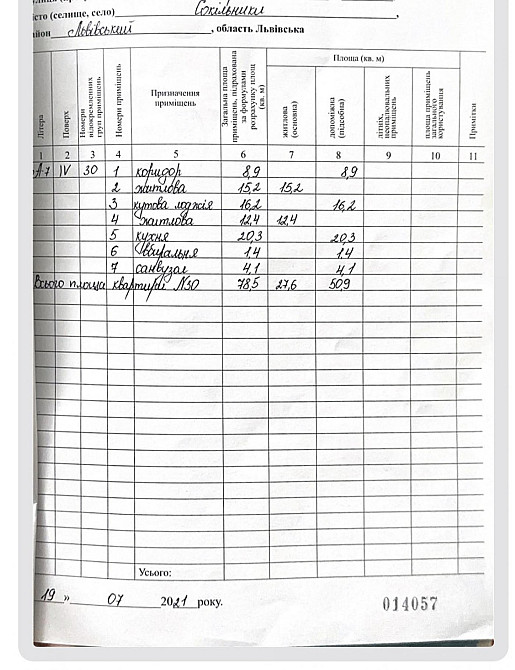 місто (селище, село) Сокільники,
район Львівський, область Львівська
Літера
Поверх
Номери відокремлених груп приміщень
Номери приміщень
Призначення приміщень
Загальна площа приміщень, підрахована за формулами розрахунку площ (кв. м)
Площа (кв. м)
житлова (основна)
допоміжна (підсобна)
літніх, неопалювальних приміщень
площа приміщень загального користування
Примітки
1 2 3 4 5 6 7 8 9 10 11
А-7 IV 30 1 коридор 8,9 8,9
2 житлова 15,2 15,2
3 кутова лоджія 16,2 16,2
4 житлова 12,4 12,4
5 кухня 20,3 20,3
6 вбиральня 1,4 1,4
7 санвузол 4,1 4,1
Всього площа квартири N30 78,5 27,6 50,9
Усього:
19 » 07 2021 року.
014057